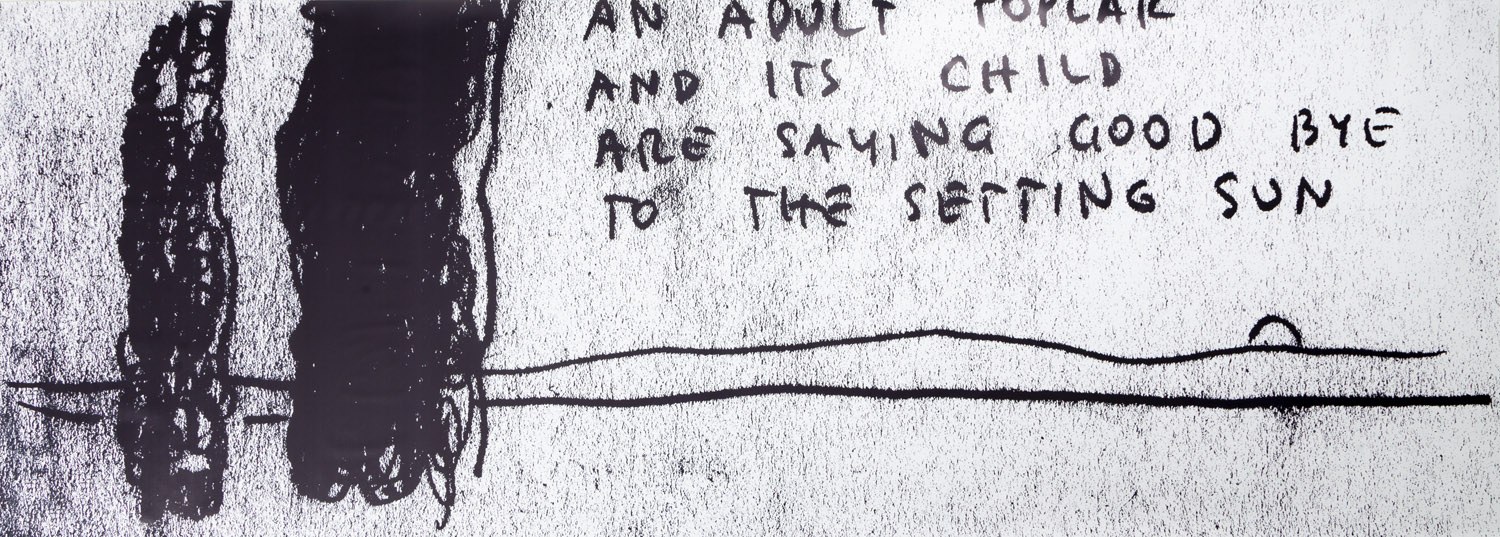 AN ADULT POPLAR
AND ITS CHILD
ARE SAYING GOOD BYE
TO THE SETTING SUN